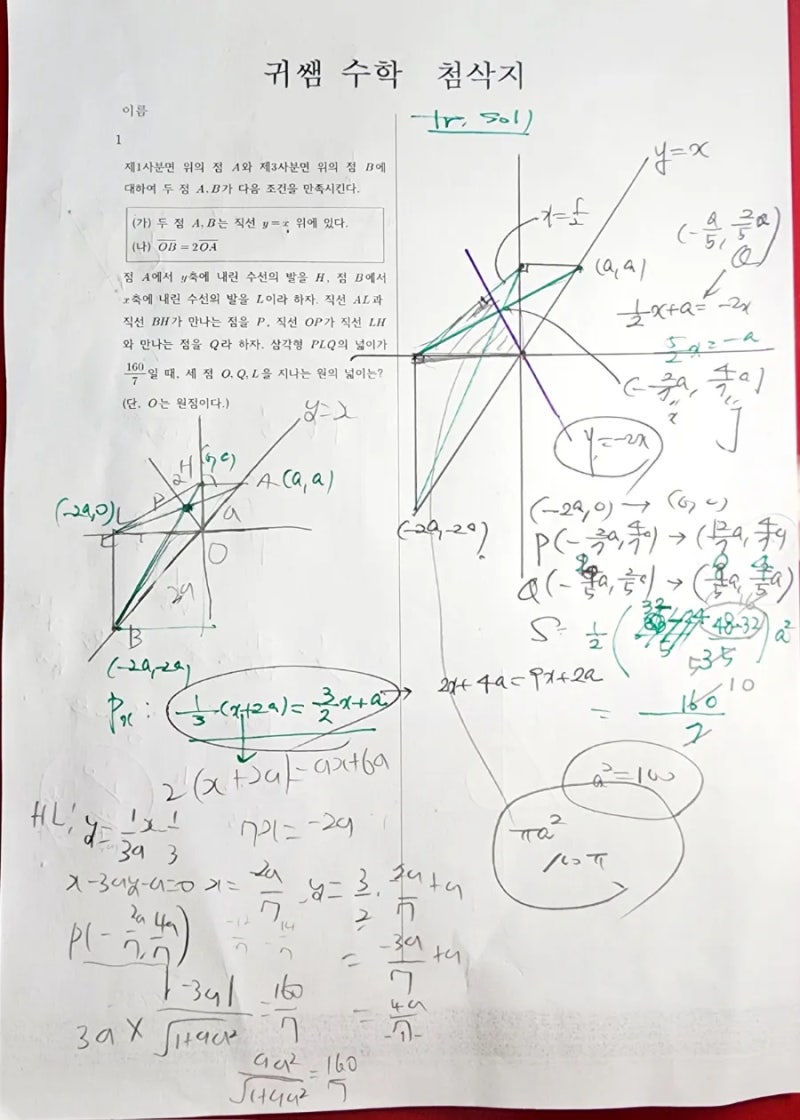 귀쌤 수학 첨삭지
이름
1
제1사분면 위의 점 A와 제3사분면 위의 점 B에
대하여 두 점 A, B가 다음 조건을 만족시킨다.
(가) 두 점 A, B는 직선 y=x 위에 있다.
(나) OB = 2OA
점 A에서 y축에 내린 수선의 발을 H, 점 B에서
x축에 내린 수선의 발을 L이라 하자. 직선 AL과
직선 BH가 만나는 점을 P, 직선 OP가 직선 LH
와 만나는 점을 Q라 하자. 삼각형 PLQ의 넓이가
160/7일 때, 세 점 O, Q, L을 지나는 원의 넓이는?
(단, O는 원점이다.)
y=x
H
A (a, a)
(-2a,0)
L
P
a
O
2a
B
(-2a,-2a)
1/3 (x+2a) = 3/2 x+a
2(x+2a)=9x+6a
HL:
7x = -2a
x-3ay-a=0
P(-2a/7, 4a/7)
= -3a/7 +a
= 4a/7
3a × |-3a|/√1+9a² = 160/7
9a²/√1+9a² = 160/7
tr. sol)
y=x
(a, a)
(-a/5, 2/5a)
Q
1/2x+a = -2x
5/2x = -a
(-2/7a, 4/7a)
y=-2x
(-2a,-2a)
(-2a,0) → (0, 0)
P(-2/7a, 4/7a) → (12/7a, 4/7a)
S= 1/2 (
48-32
35
) a²
2x+4a=9x+2a
= 160/7
10
a²=100
πa²
100π